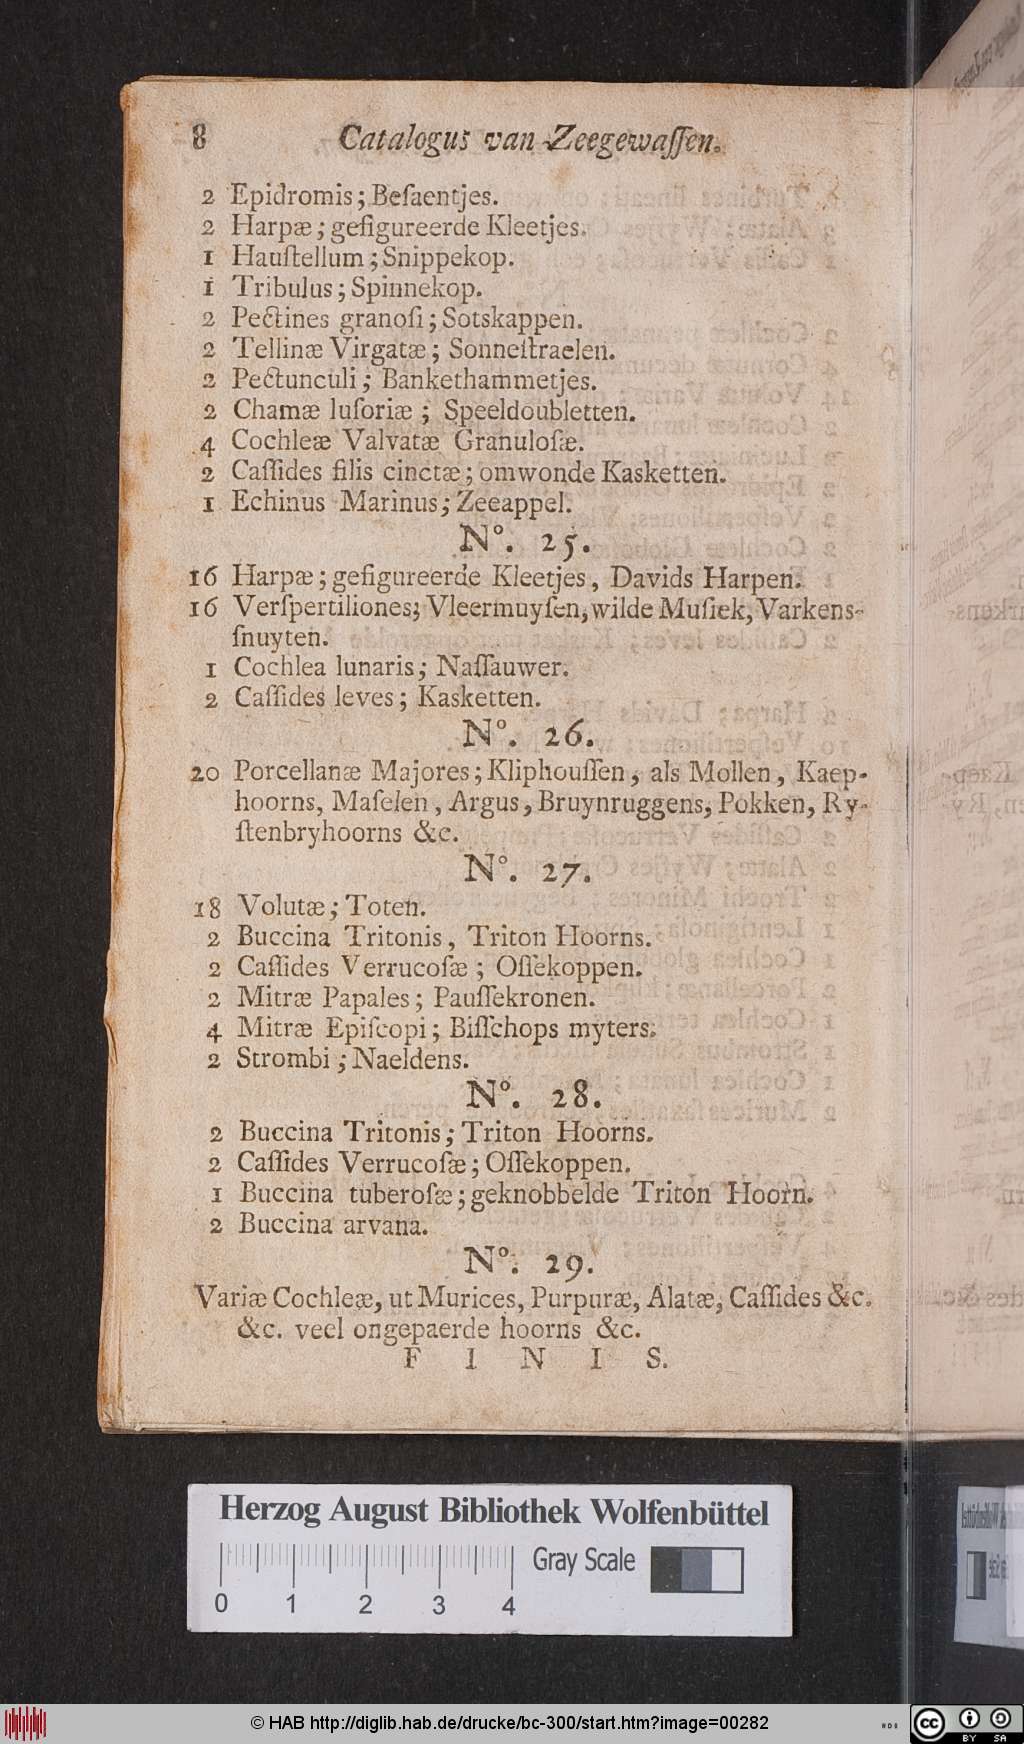 8 Catalogus van Zeegewaſſen.
2 Epidromis; Beſaentjes.
2 Harpæ; gefigureerde Kleetjes.
1 Hauſtellum; Snippekop.
1 Tribulus; Spinnekop.
2 Pectines granoſi; Sotskappen.
2 Tellinæ Virgatæ; Sonneſtraelen.
2 Pectunculi; Bankethammetjes.
2 Chamæ luſoriæ; Speeldoubletten.
4 Cochleæ Valvatæ Granuloſæ.
2 Caſſides filis cinctæ; omwonde Kasketten.
1 Echinus Marinus; Zeeappel.
N°. 25.
16 Harpæ; gefigureerde Kleetjes, Davids Harpen.
16 Verſpertiliones; Vleermuyſen, wilde Muſiek, Varkens-
ſnuyten.
1 Cochlea lunaris; Naſſauwer.
2 Caſſides leves; Kasketten.
N°. 26.
20 Porcellanæ Majores; Kliphouſſen, als Mollen, Kaep-
hoorns, Maſelen, Argus, Bruynruggens, Pokken, Ry-
ſtenbryhoorns &c.
N°. 27.
18 Volutæ; Toten.
2 Buccina Tritonis, Triton Hoorns.
2 Caſſides Verrucoſæ; Oſſekoppen.
2 Mitræ Papales; Pauſſekronen.
4 Mitræ Epiſcopi; Biſſchops myters.
2 Strombi; Naeldens.
N°. 28.
2 Buccina Tritonis; Triton Hoorns.
2 Caſſides Verrucoſæ; Oſſekoppen.
1 Buccina tuberoſæ; geknobbelde Triton Hoorn.
2 Buccina arvana.
N°. 29.
Variæ Cochleæ, ut Murices, Purpuræ, Alatæ, Caſſides &c.
&c. veel ongepaerde hoorns &c.
F I N I S.
Herzog August Bibliothek Wolfenbüttel
Gray Scale
0 1 2 3 4
© HAB http://diglib.hab.de/drucke/bc-300/start.htm?image=00282
cc BY SA